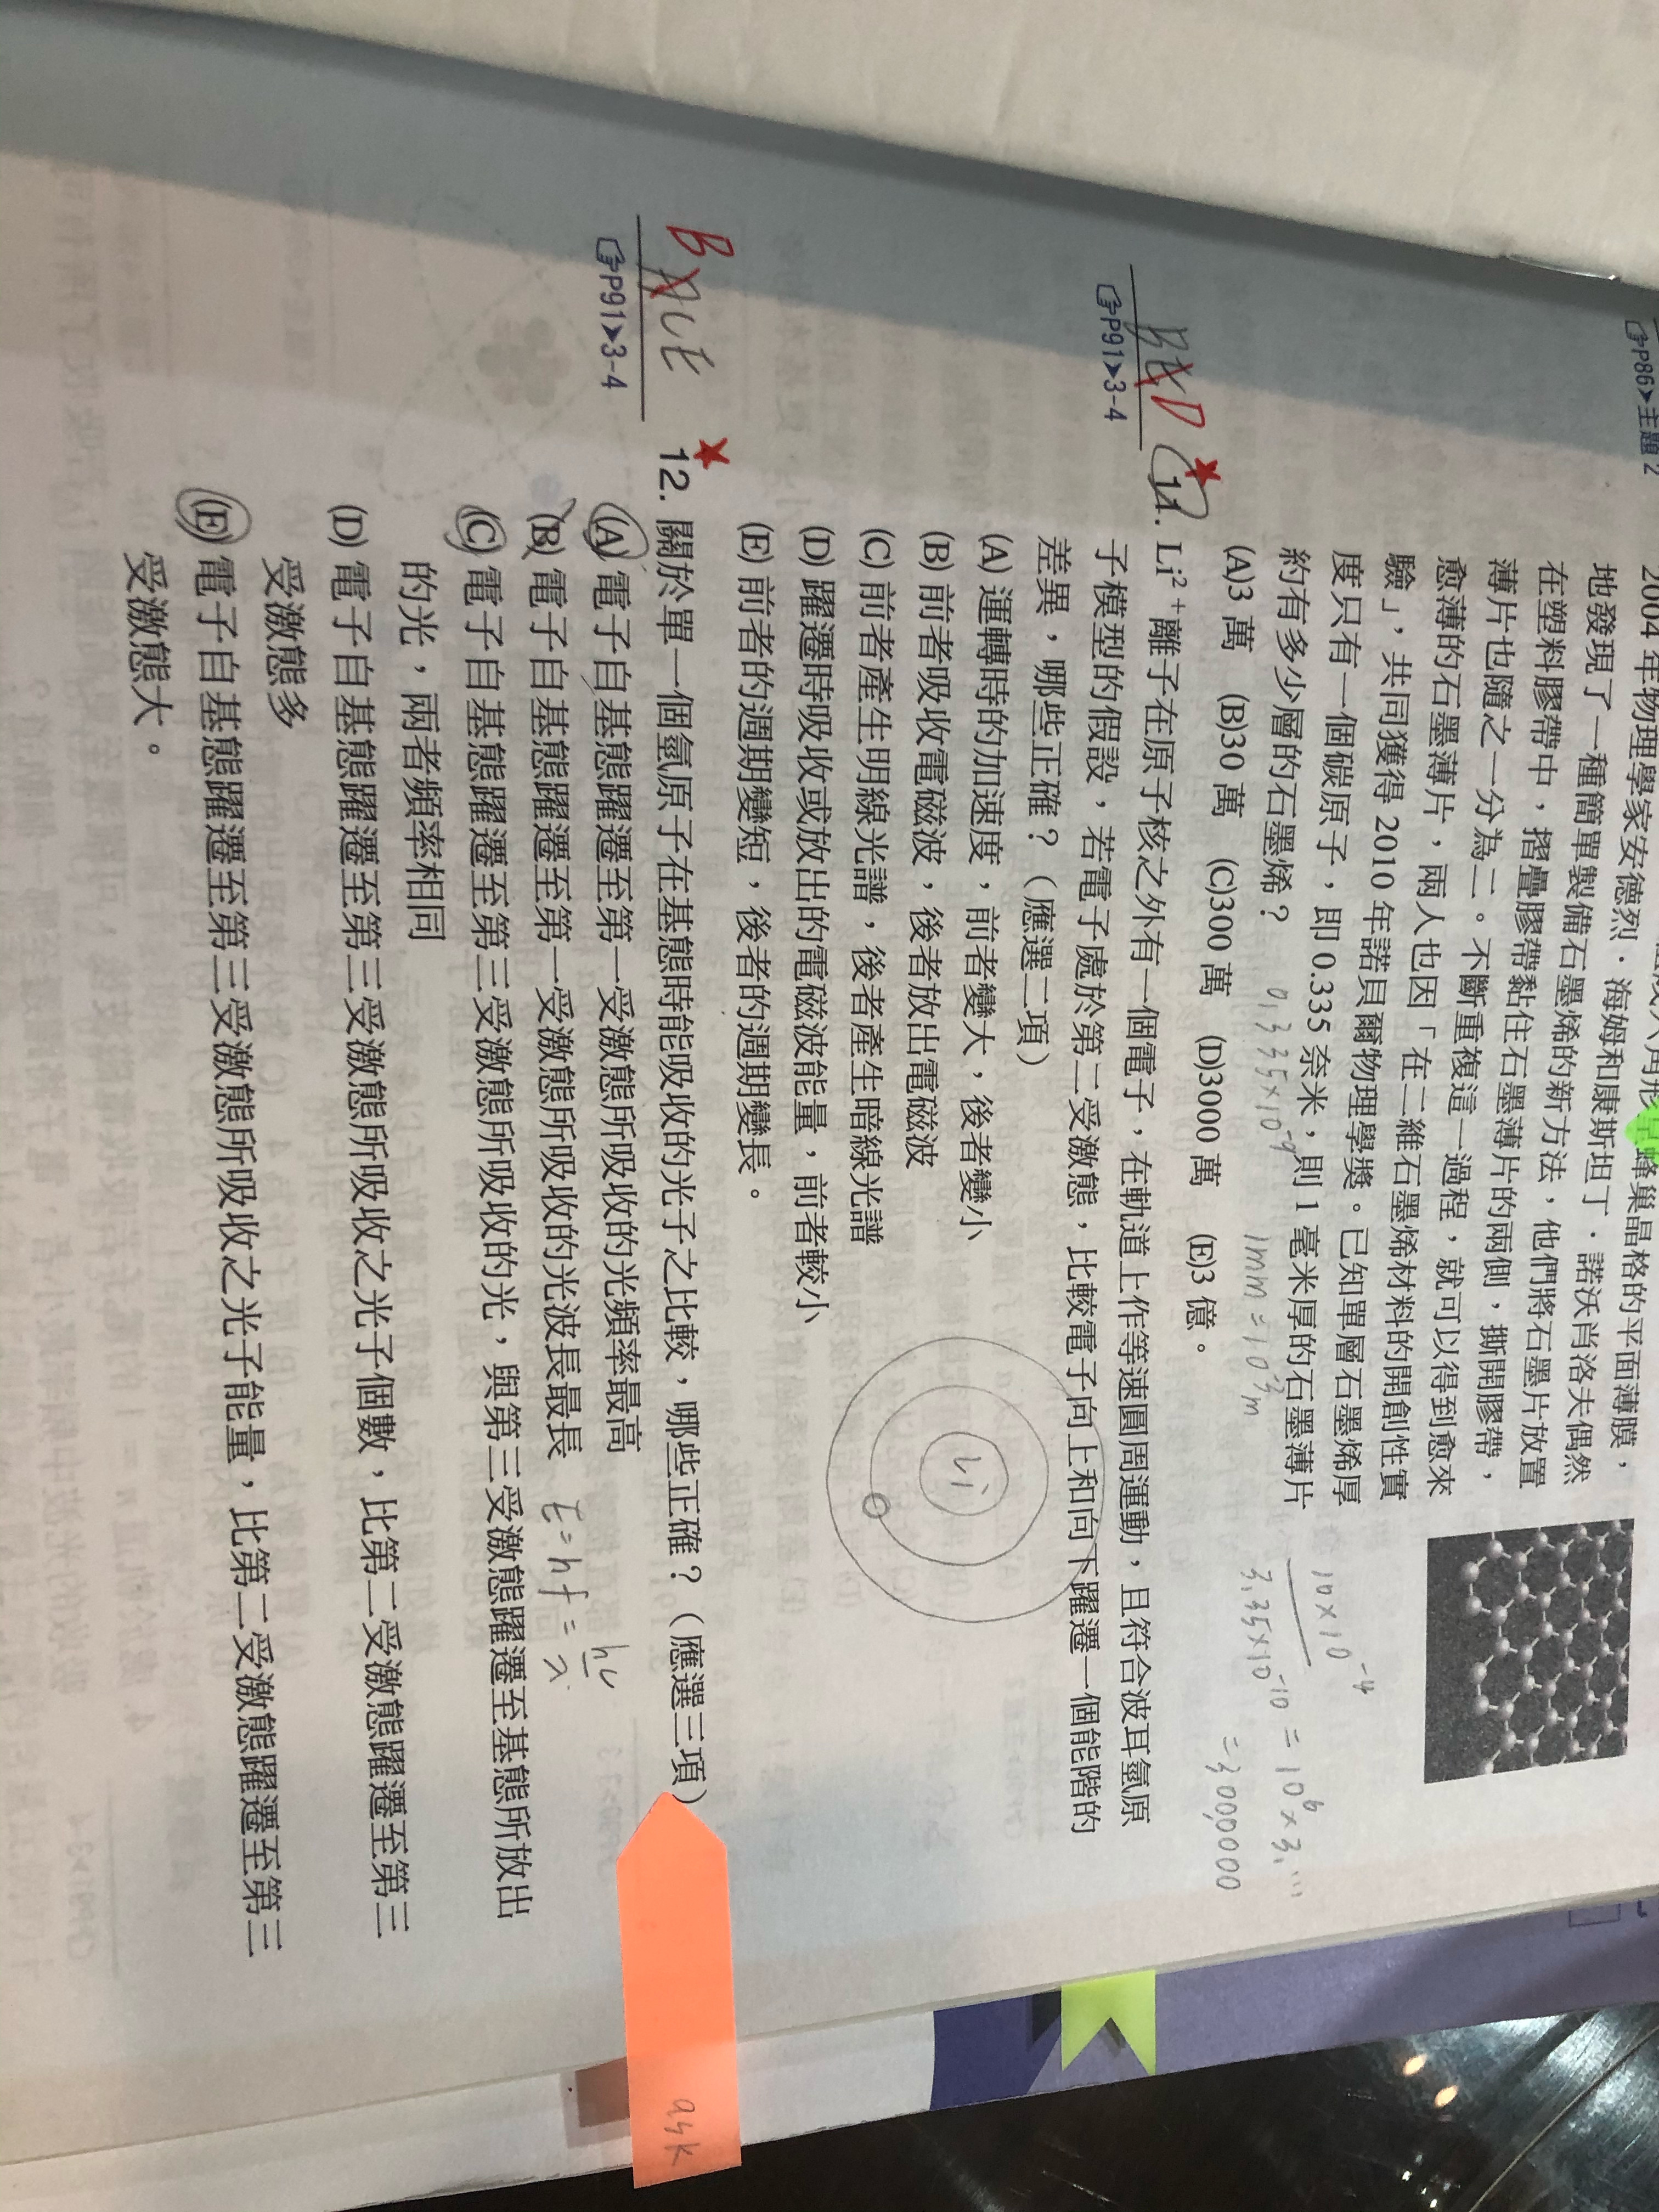 ☞P86➤主題2
2004 年物理學家安德烈．海姆和康斯坦丁．諾沃肖洛夫偶然
地發現了一種簡單製備石墨烯的新方法，他們將石墨片放置
在塑料膠帶中，摺疊膠帶黏住石墨薄片的兩側，撕開膠帶，
薄片也隨之一分為二。不斷重複這一過程，就可以得到愈來
愈薄的石墨薄片，兩人也因「在二維石墨烯材料的開創性實
驗」，共同獲得 2010 年諾貝爾物理學獎。已知單層石墨烯厚
度只有一個碳原子，即 0.335 奈米，則 1 毫米厚的石墨薄片
約有多少層的石墨烯？
(A)3 萬 (B)30 萬 (C)300 萬 (D)3000 萬 (E)3 億。
0.335×10⁻⁹
1mm=10⁻³m
10×10⁻⁴
3.35×10⁻¹⁰ = 10⁶×3.…
=3,000,000
☞P91➤3-4
11. Li²⁺離子在原子核之外有一個電子，在軌道上作等速圓周運動，且符合波耳氫原
子模型的假設，若電子處於第二受激態，比較電子向上和向下躍遷一個能階的
差異，哪些正確？（應選二項）
(A) 運轉時的加速度，前者變大，後者變小
(B) 前者吸收電磁波，後者放出電磁波
(C) 前者產生明線光譜，後者產生暗線光譜
(D) 躍遷時吸收或放出的電磁波能量，前者較小
(E) 前者的週期變短，後者的週期變長。
Li
B ACE
☞P91➤3-4
12. 關於單一個氫原子在基態時能吸收的光子之比較，哪些正確？（應選三項）
(A) 電子自基態躍遷至第一受激態所吸收的光頻率最高
(B) 電子自基態躍遷至第一受激態所吸收的光波長最長
E=hf=hc/λ
(C) 電子自基態躍遷至第三受激態所吸收的光，與第三受激態躍遷至基態所放出
的光，兩者頻率相同
(D) 電子自基態躍遷至第三受激態所吸收之光子個數，比第二受激態躍遷至第三
受激態多
(E) 電子自基態躍遷至第三受激態所吸收之光子能量，比第二受激態躍遷至第三
受激態大。
ask